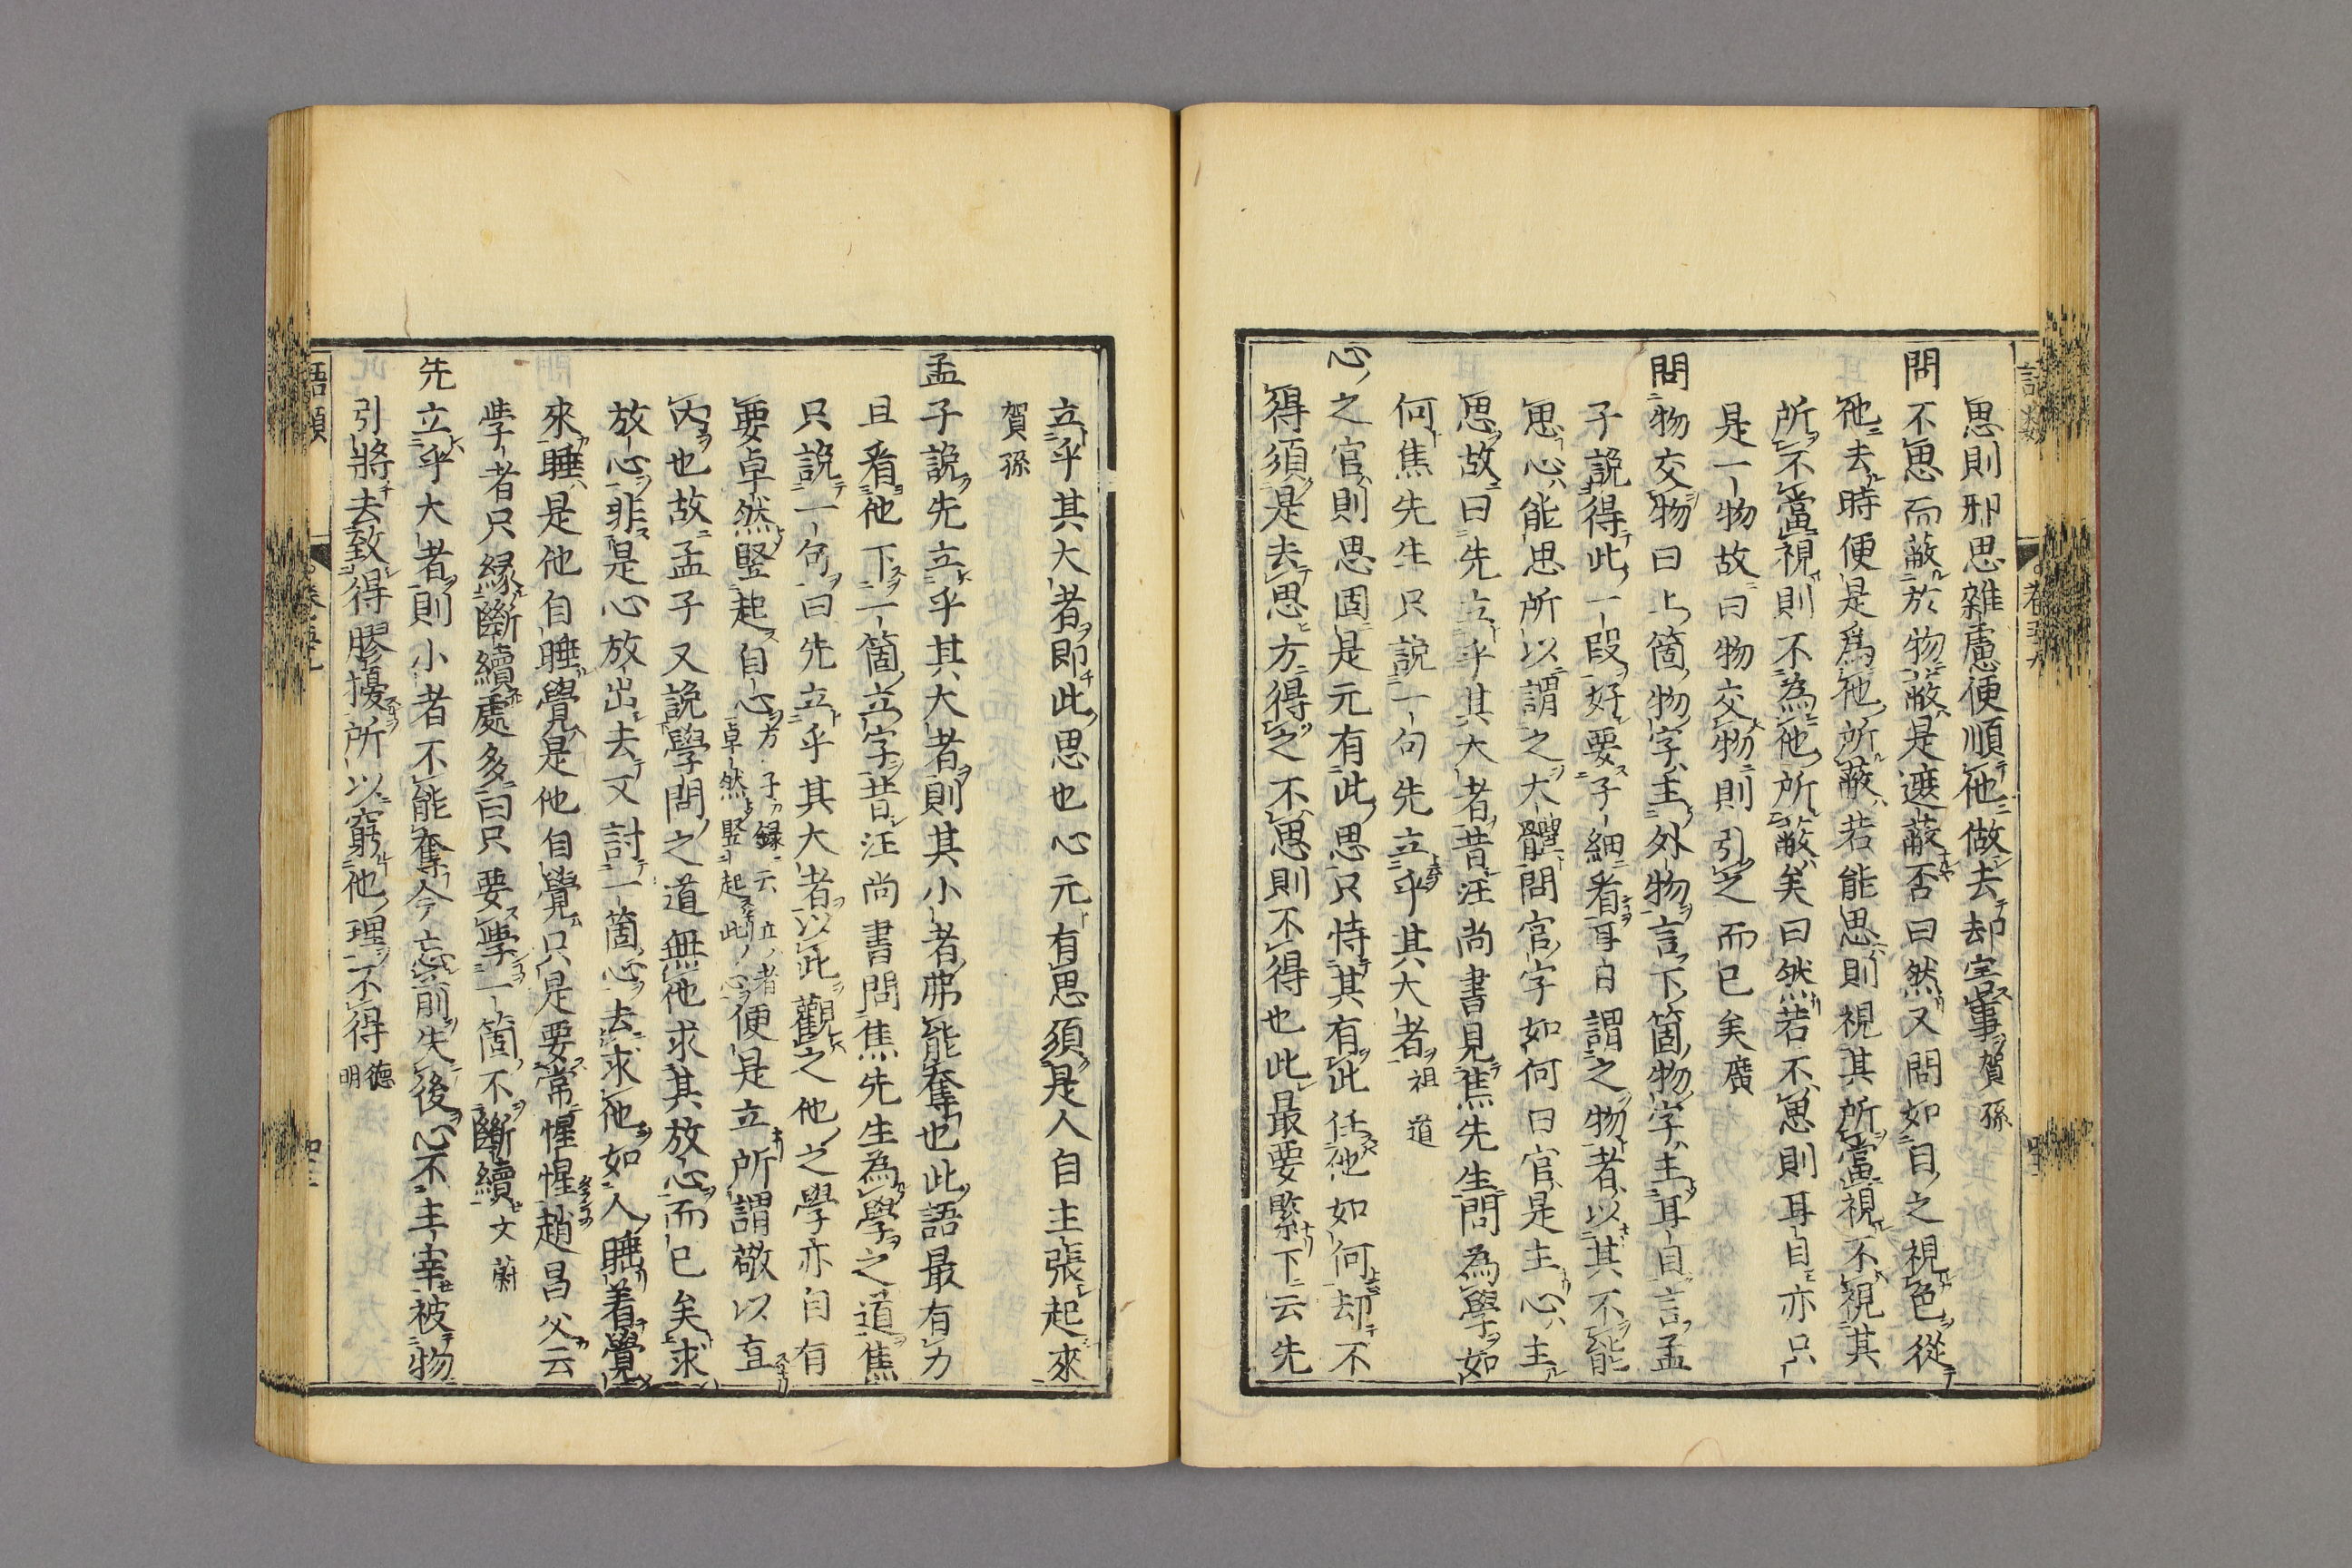 思則邪思雜慮便順他做去却害事賀孫
問不思而蔽於物蔽是遮蔽否曰然又問如目之視色從
他去時便是爲他所蔽若能思則視其所當視不視其
所不當視則不為他所蔽矣曰然若不思則耳目亦只
是一物故曰物交物則引之而已矣廣
問物交物曰上箇物字主外物言下箇物字主耳目言孟
子說得此一段好要子細看耳目謂之物者以其不能
思心能思所以謂之大體問官字如何曰官是主心主
思故曰先立乎其大者昔汪尚書見焦先生問為學如
何焦先生只說一句先立乎其大者祖道
心之官則思固是元有此思只恃其有此任他如何却不
得須是去思方得之不思則不得也此最要緊下云先
立乎其大者即此思也心元有思須是人自主張起來
賀孫
孟子說先立乎其大者則其小者弗能奪也此語最有力
且看他下一箇立字昔汪尚書問焦先生為學之道焦
只說一句曰先立乎其大者以此觀之他之學亦自有
要卓然竪起自心方子録云立者卓然竪起此心便是立所謂敬以直
內也故孟子又說學問之道無他求其放心而已矣求
放心非是心放出去又討一箇心去求他如人睡着覺
來睡是他自睡覺是他自覺只是要常惺惺趙昌父云
學者只緣斷續處多曰只要學一箇不斷續文蔚
先立乎大者則小者不能奪今忘前失後心不主宰被物
引將去致得膠擾所以窮他理不得德明
語類